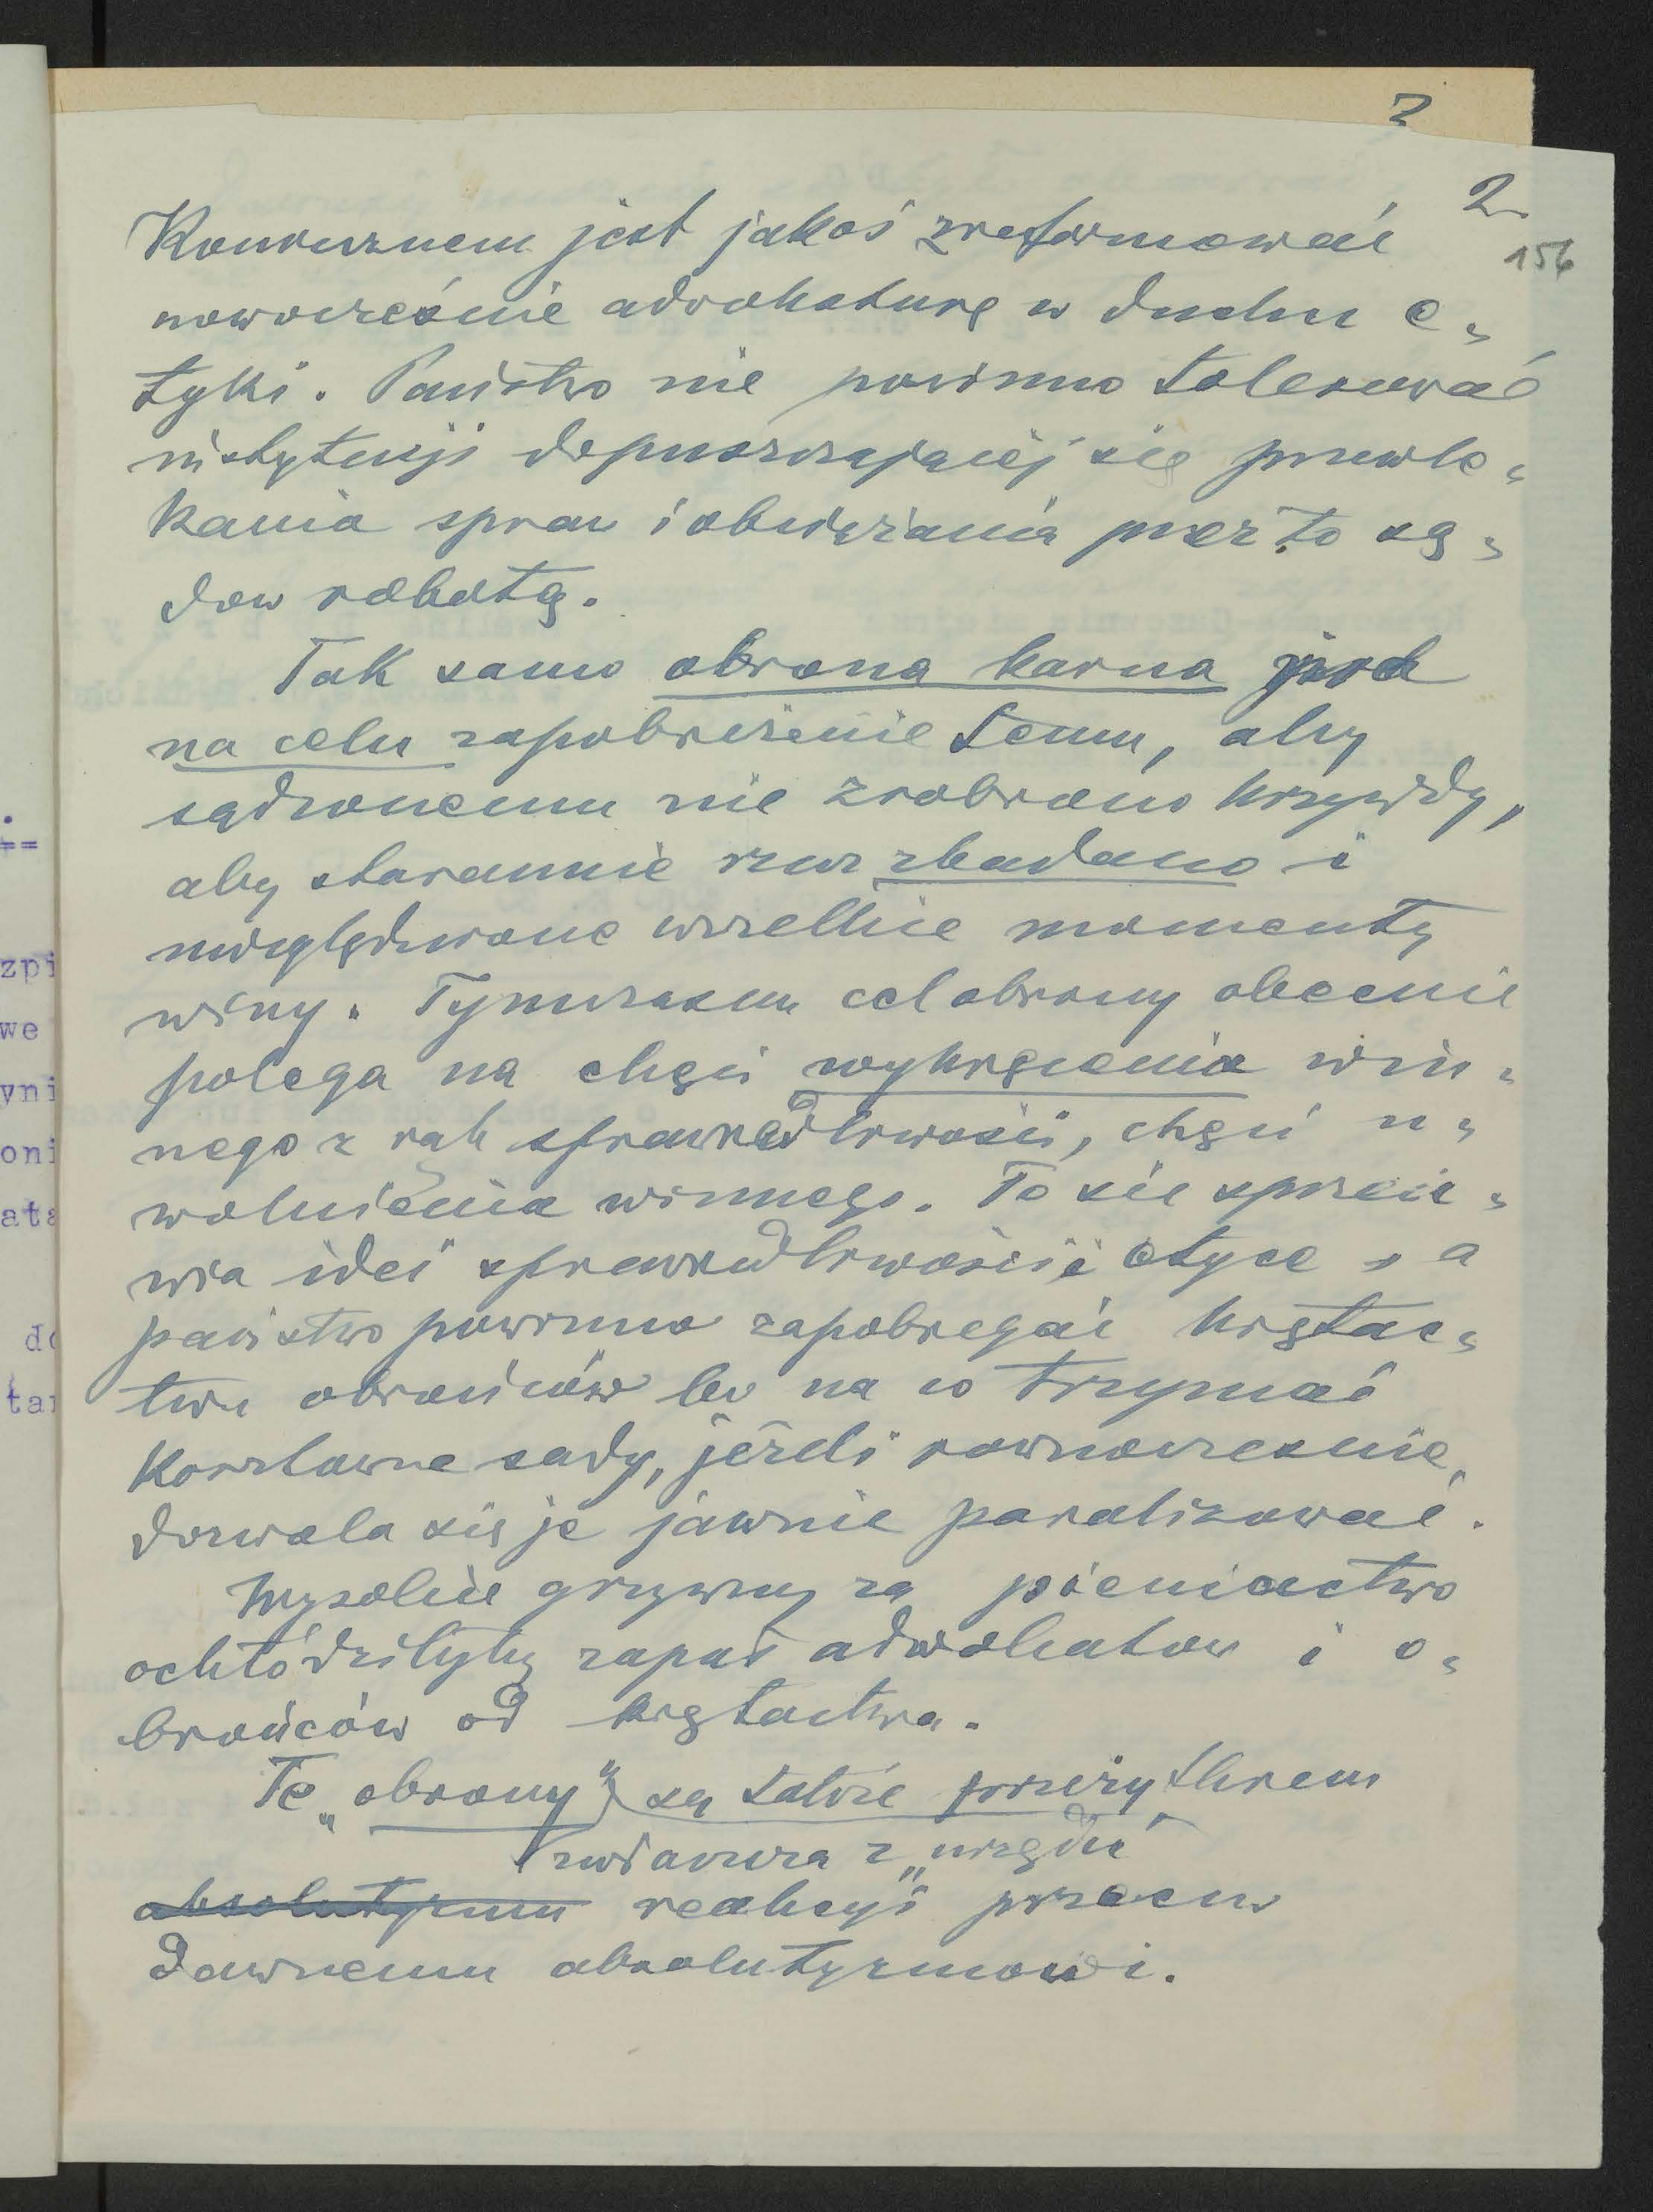 2
2.
156
Koniecznem jest jakoś zreformować
nowocześnie adwokaturę w duchu e-
tyki. Państwo nie powinno tolerować
instytucji dopuszczającej się przewle-
kania spraw i obciążania przez to są-
dów robotą.
Tak samo obrona karna
na celu zapobieżenie temu, aby
sądzonemu nie zrobiono krzywdy,
aby starannie rzecz zbadano i
uwzględniono wszelkie momenty
winy. Tymczasem cel obrony obecnie
polega na chęci wykręcenia win-
nego z rąk sprawiedliwości, chęci u-
wolnienia winnego. To się sprzeci-
wia idei sprawiedliwości i etyce, a
państwo powinno zapobiegać krętac-
twu obrońców bo na co trzymać
kosztowne sądy, jeżeli równocześnie
dozwala się je jawnie paraliżować.
Wysokie grzywny za pieniactwo
ochłodziłyby zapał adwokatów i o-
brońców od krętactwa.
Te „obrony” są także przeżytkiem
zwłaszcza z „urzędu”
absolutyzmu reakcyi przeciw
dawnemu absolutyzmowi.
==
zpi
we
yni
oni
ata
do
tar